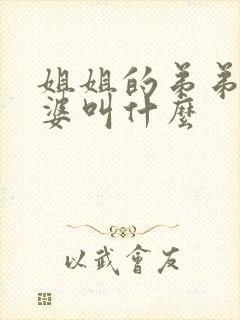 姐姐的弟弟
婆叫什麼
以武會友